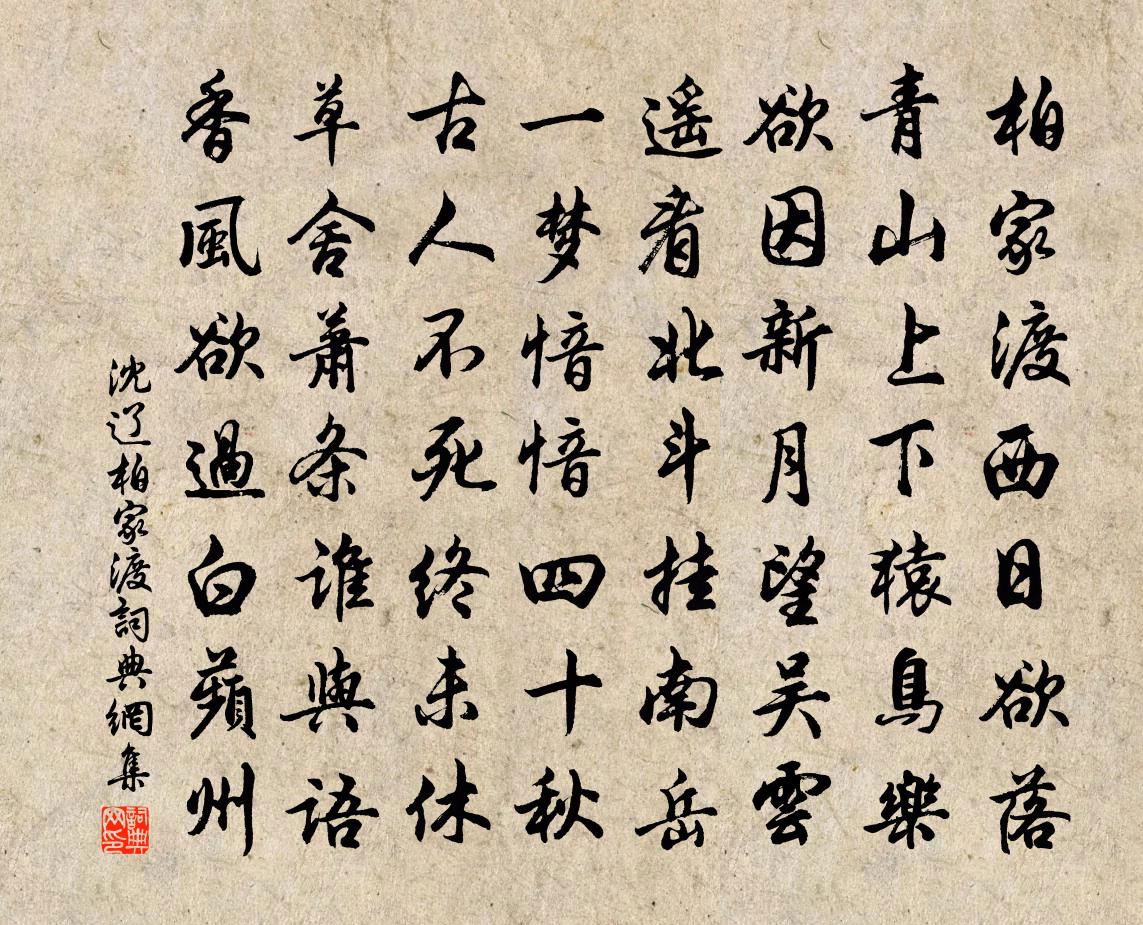 柏家渡西日欲落
青山上下猿鳥樂
欲因新月望吴雲
遥看北斗挂南岳
一梦愔愔四十秋
古人不死终未休
草舍萧条谁與语
香風欲過白蘋州
沈辽柏家渡詞典網集
詞典网印